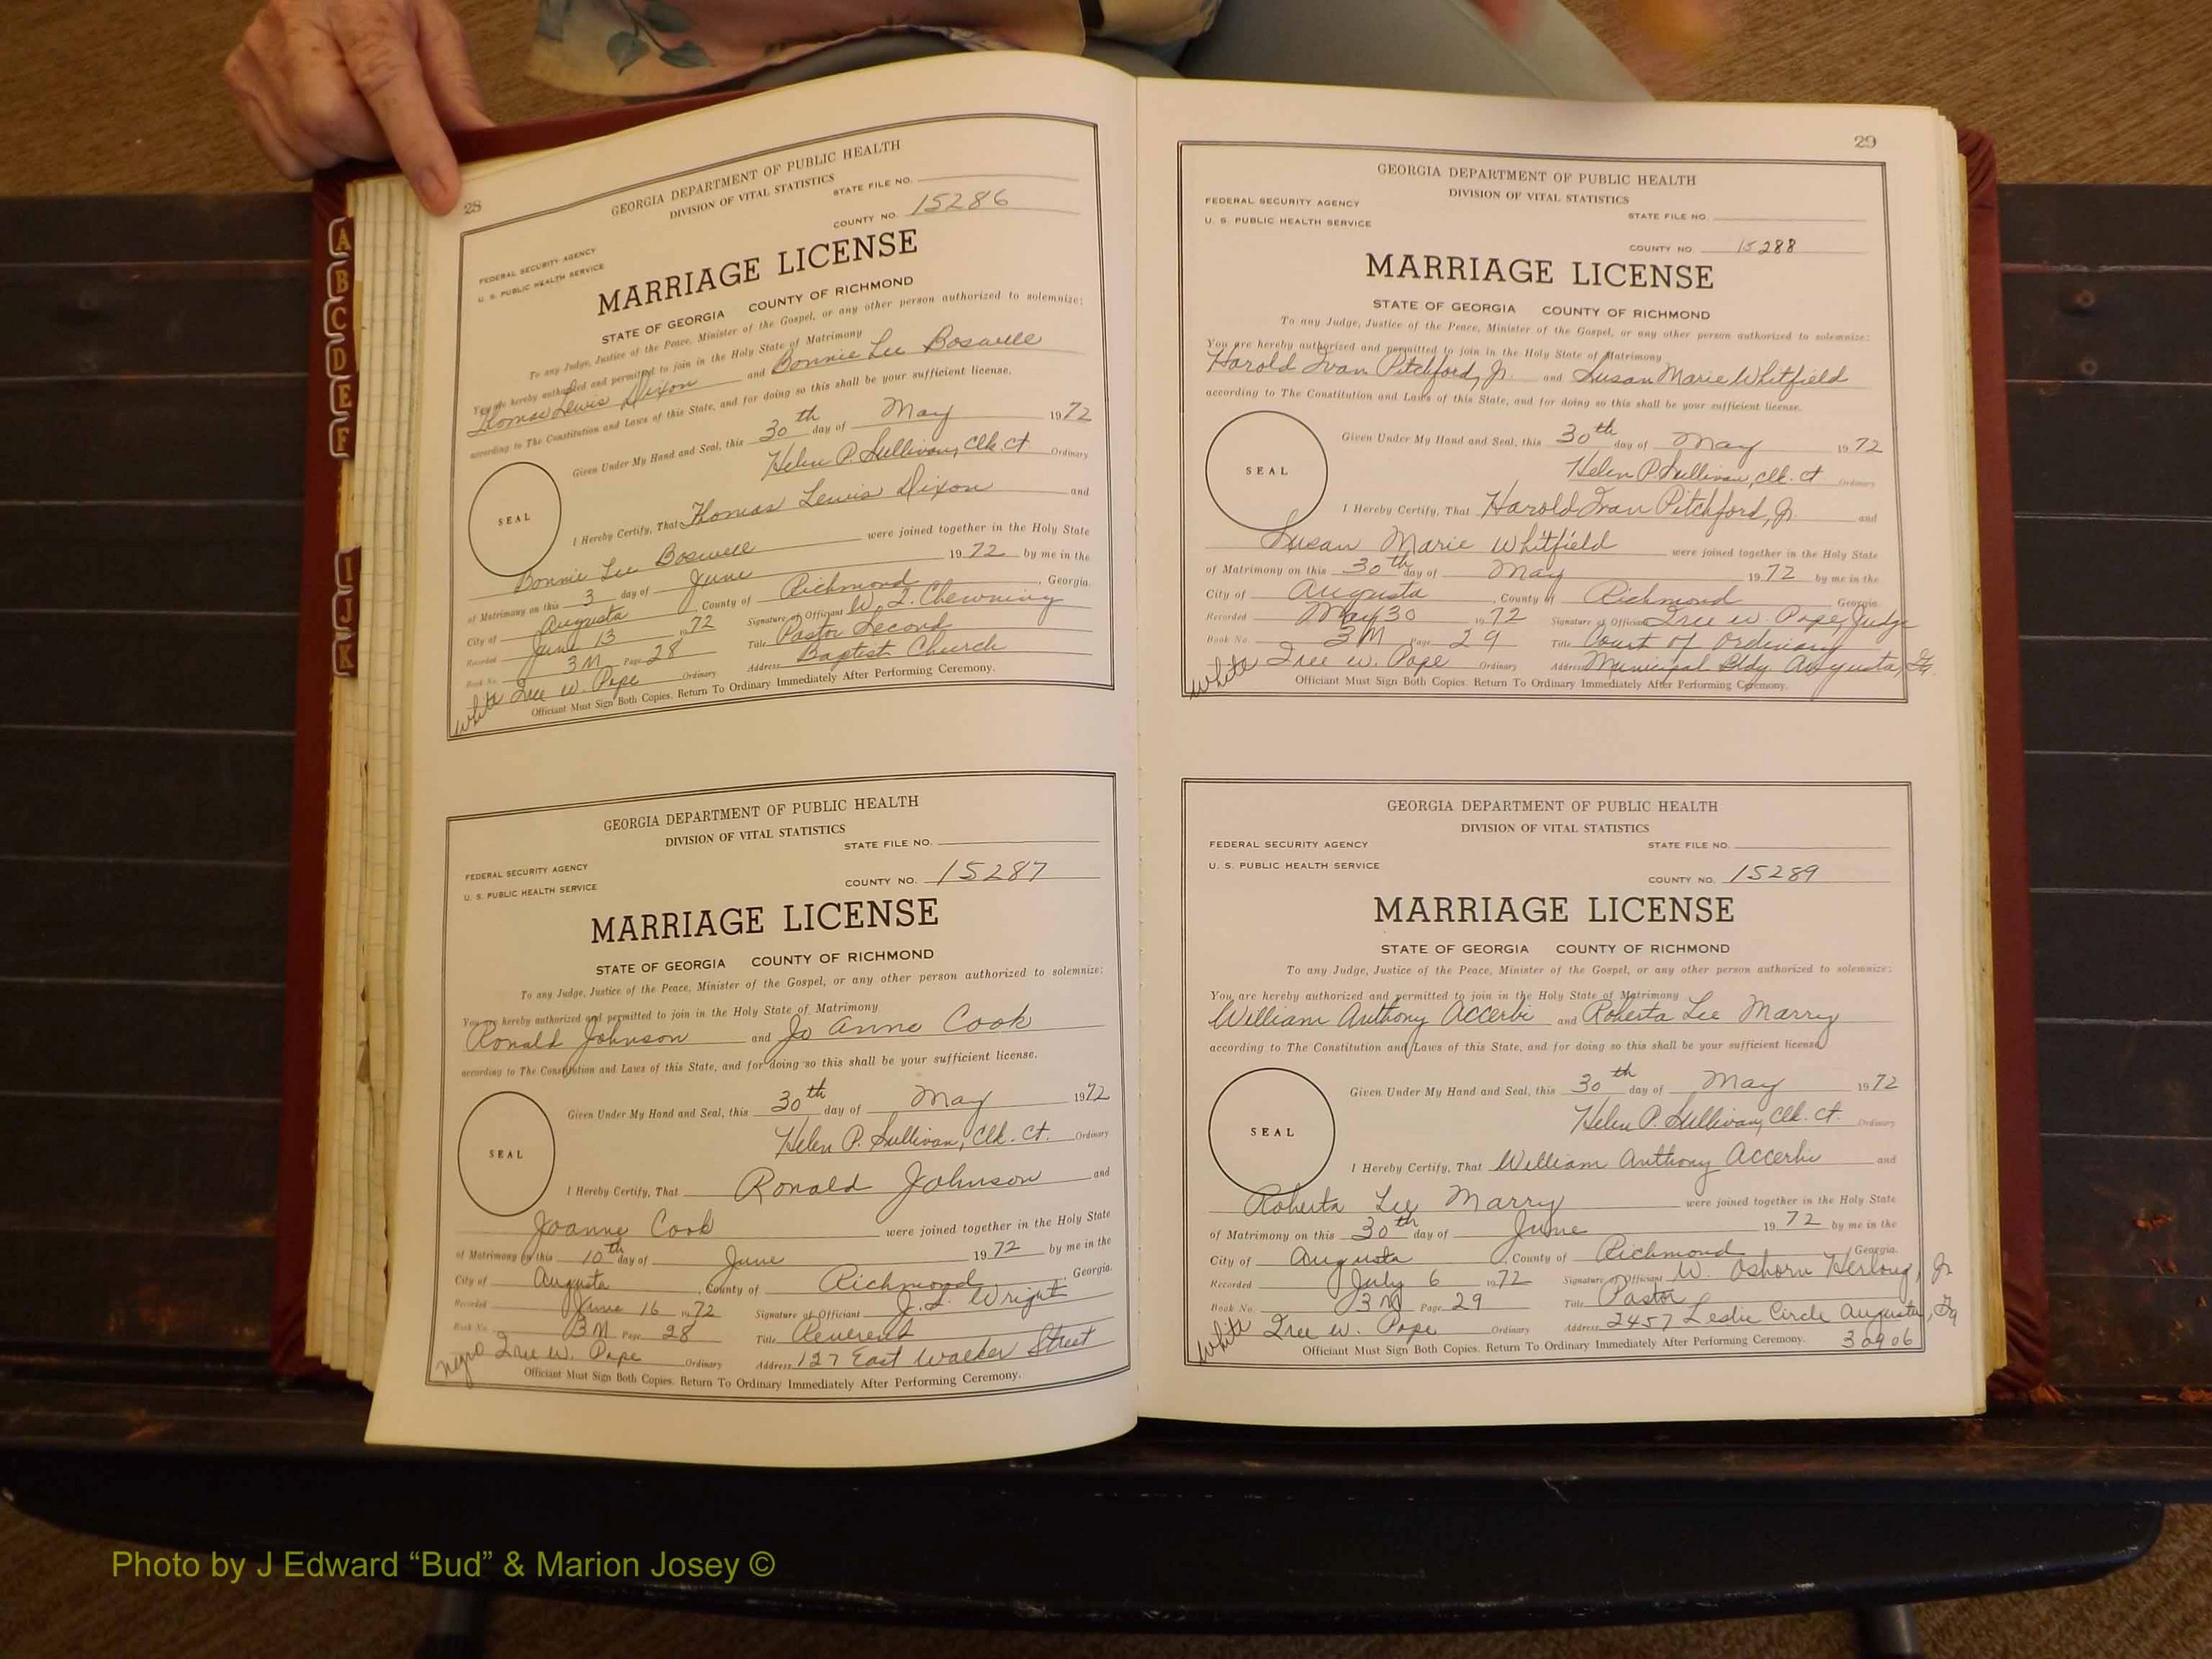 A
B
C
D
E
F
I
J
K
28
GEORGIA DEPARTMENT OF PUBLIC HEALTH
DIVISION OF VITAL STATISTICS
STATE FILE NO.
COUNTY NO. 15286
FEDERAL SECURITY AGENCY
U. S. PUBLIC HEALTH SERVICE
MARRIAGE LICENSE
STATE OF GEORGIA COUNTY OF RICHMOND
To any Judge, Justice of the Peace, Minister of the Gospel, or any other person authorized to solemnize:
You are hereby authorized and permitted to join in the Holy State of Matrimony
Thomas Lewis Dixon and Bonnie Lee Boswell
according to The Constitution and Laws of this State, and for doing so this shall be your sufficient license.
Given Under My Hand and Seal, this 30th day of May 1972
Helen P. Sullivan, Clk. Ct. Ordinary
SEAL
I Hereby Certify, That Thomas Lewis Dixon and
Bonnie Lee Boswell were joined together in the Holy State
of Matrimony on this 3 day of June 1972 by me in the
City of Augusta, County of Richmond, Georgia.
Recorded June 13 1972 Signature of Officiant W. I. Chewning
Book No. 3M Page 28 Title Pastor Second
white Ordinary Address Baptist Church
Officiant Must Sign Both Copies. Return To Ordinary Immediately After Performing Ceremony.
GEORGIA DEPARTMENT OF PUBLIC HEALTH
DIVISION OF VITAL STATISTICS
STATE FILE NO.
FEDERAL SECURITY AGENCY
U. S. PUBLIC HEALTH SERVICE
COUNTY NO. 15287
MARRIAGE LICENSE
STATE OF GEORGIA COUNTY OF RICHMOND
To any Judge, Justice of the Peace, Minister of the Gospel, or any other person authorized to solemnize:
You are hereby authorized and permitted to join in the Holy State of Matrimony
Ronald Johnson and Jo Anne Cook
according to The Constitution and Laws of this State, and for doing so this shall be your sufficient license.
Given Under My Hand and Seal, this 30th day of May 1972
Helen P. Sullivan, Clk. Ct. Ordinary
SEAL
I Hereby Certify, That Ronald Johnson and
Joanne Cook were joined together in the Holy State
of Matrimony on this 10th day of June 1972 by me in the
City of Augusta, County of Richmond, Georgia.
Recorded June 16 1972 Signature of Officiant J. L. Wright
Book No. 3M Page 28 Title Reverend
negro W. Pope Ordinary Address 127 East Walker Street
Officiant Must Sign Both Copies. Return To Ordinary Immediately After Performing Ceremony.
29
GEORGIA DEPARTMENT OF PUBLIC HEALTH
DIVISION OF VITAL STATISTICS
FEDERAL SECURITY AGENCY
U. S. PUBLIC HEALTH SERVICE
STATE FILE NO.
COUNTY NO. 15288
MARRIAGE LICENSE
STATE OF GEORGIA COUNTY OF RICHMOND
To any Judge, Justice of the Peace, Minister of the Gospel, or any other person authorized to solemnize:
You are hereby authorized and permitted to join in the Holy State of Matrimony
Harold Ivan Pitchford, Jr. and Susan Marie Whitfield
according to The Constitution and Laws of this State, and for doing so this shall be your sufficient license.
Given Under My Hand and Seal, this 30th day of May 1972
Helen P. Sullivan, Clk. Ct. Ordinary
SEAL
I Hereby Certify, That Harold Ivan Pitchford, Jr. and
Susan Marie Whitfield were joined together in the Holy State
of Matrimony on this 30th day of May 1972 by me in the
City of Augusta, County of Richmond Georgia.
Recorded May 30 1972 Signature of Officiant W. Pope, Judge
Book No. 3M Page 29 Title Court of Ordinary
white W. Pope Ordinary Address Municipal Bldg Augusta, Ga.
Officiant Must Sign Both Copies. Return To Ordinary Immediately After Performing Ceremony.
GEORGIA DEPARTMENT OF PUBLIC HEALTH
DIVISION OF VITAL STATISTICS
FEDERAL SECURITY AGENCY
STATE FILE NO.
U. S. PUBLIC HEALTH SERVICE
COUNTY NO. 15289
MARRIAGE LICENSE
STATE OF GEORGIA COUNTY OF RICHMOND
To any Judge, Justice of the Peace, Minister of the Gospel, or any other person authorized to solemnize:
You are hereby authorized and permitted to join in the Holy State of Matrimony
William Anthony Accerbi and Roberta Lee Marry
according to The Constitution and Laws of this State, and for doing so this shall be your sufficient license
Given Under My Hand and Seal, this 30th day of May 1972
Helen P. Sullivan, Clk. Ct. Ordinary
SEAL
I Hereby Certify, That William Anthony Accerbi and
Roberta Lee Marry were joined together in the Holy State
of Matrimony on this 30th day of June 1972 by me in the
City of Augusta, County of Richmond, Georgia.
Recorded July 6 1972 Signature of Officiant W. Osborn Herlong, Jr
Book No. 3M Page 29 Title Pastor
white W. Pope Ordinary Address 2457 Leslie Circle Augusta, Ga
Officiant Must Sign Both Copies. Return To Ordinary Immediately After Performing Ceremony. 30906
Photo by J Edward “Bud” & Marion Josey ©